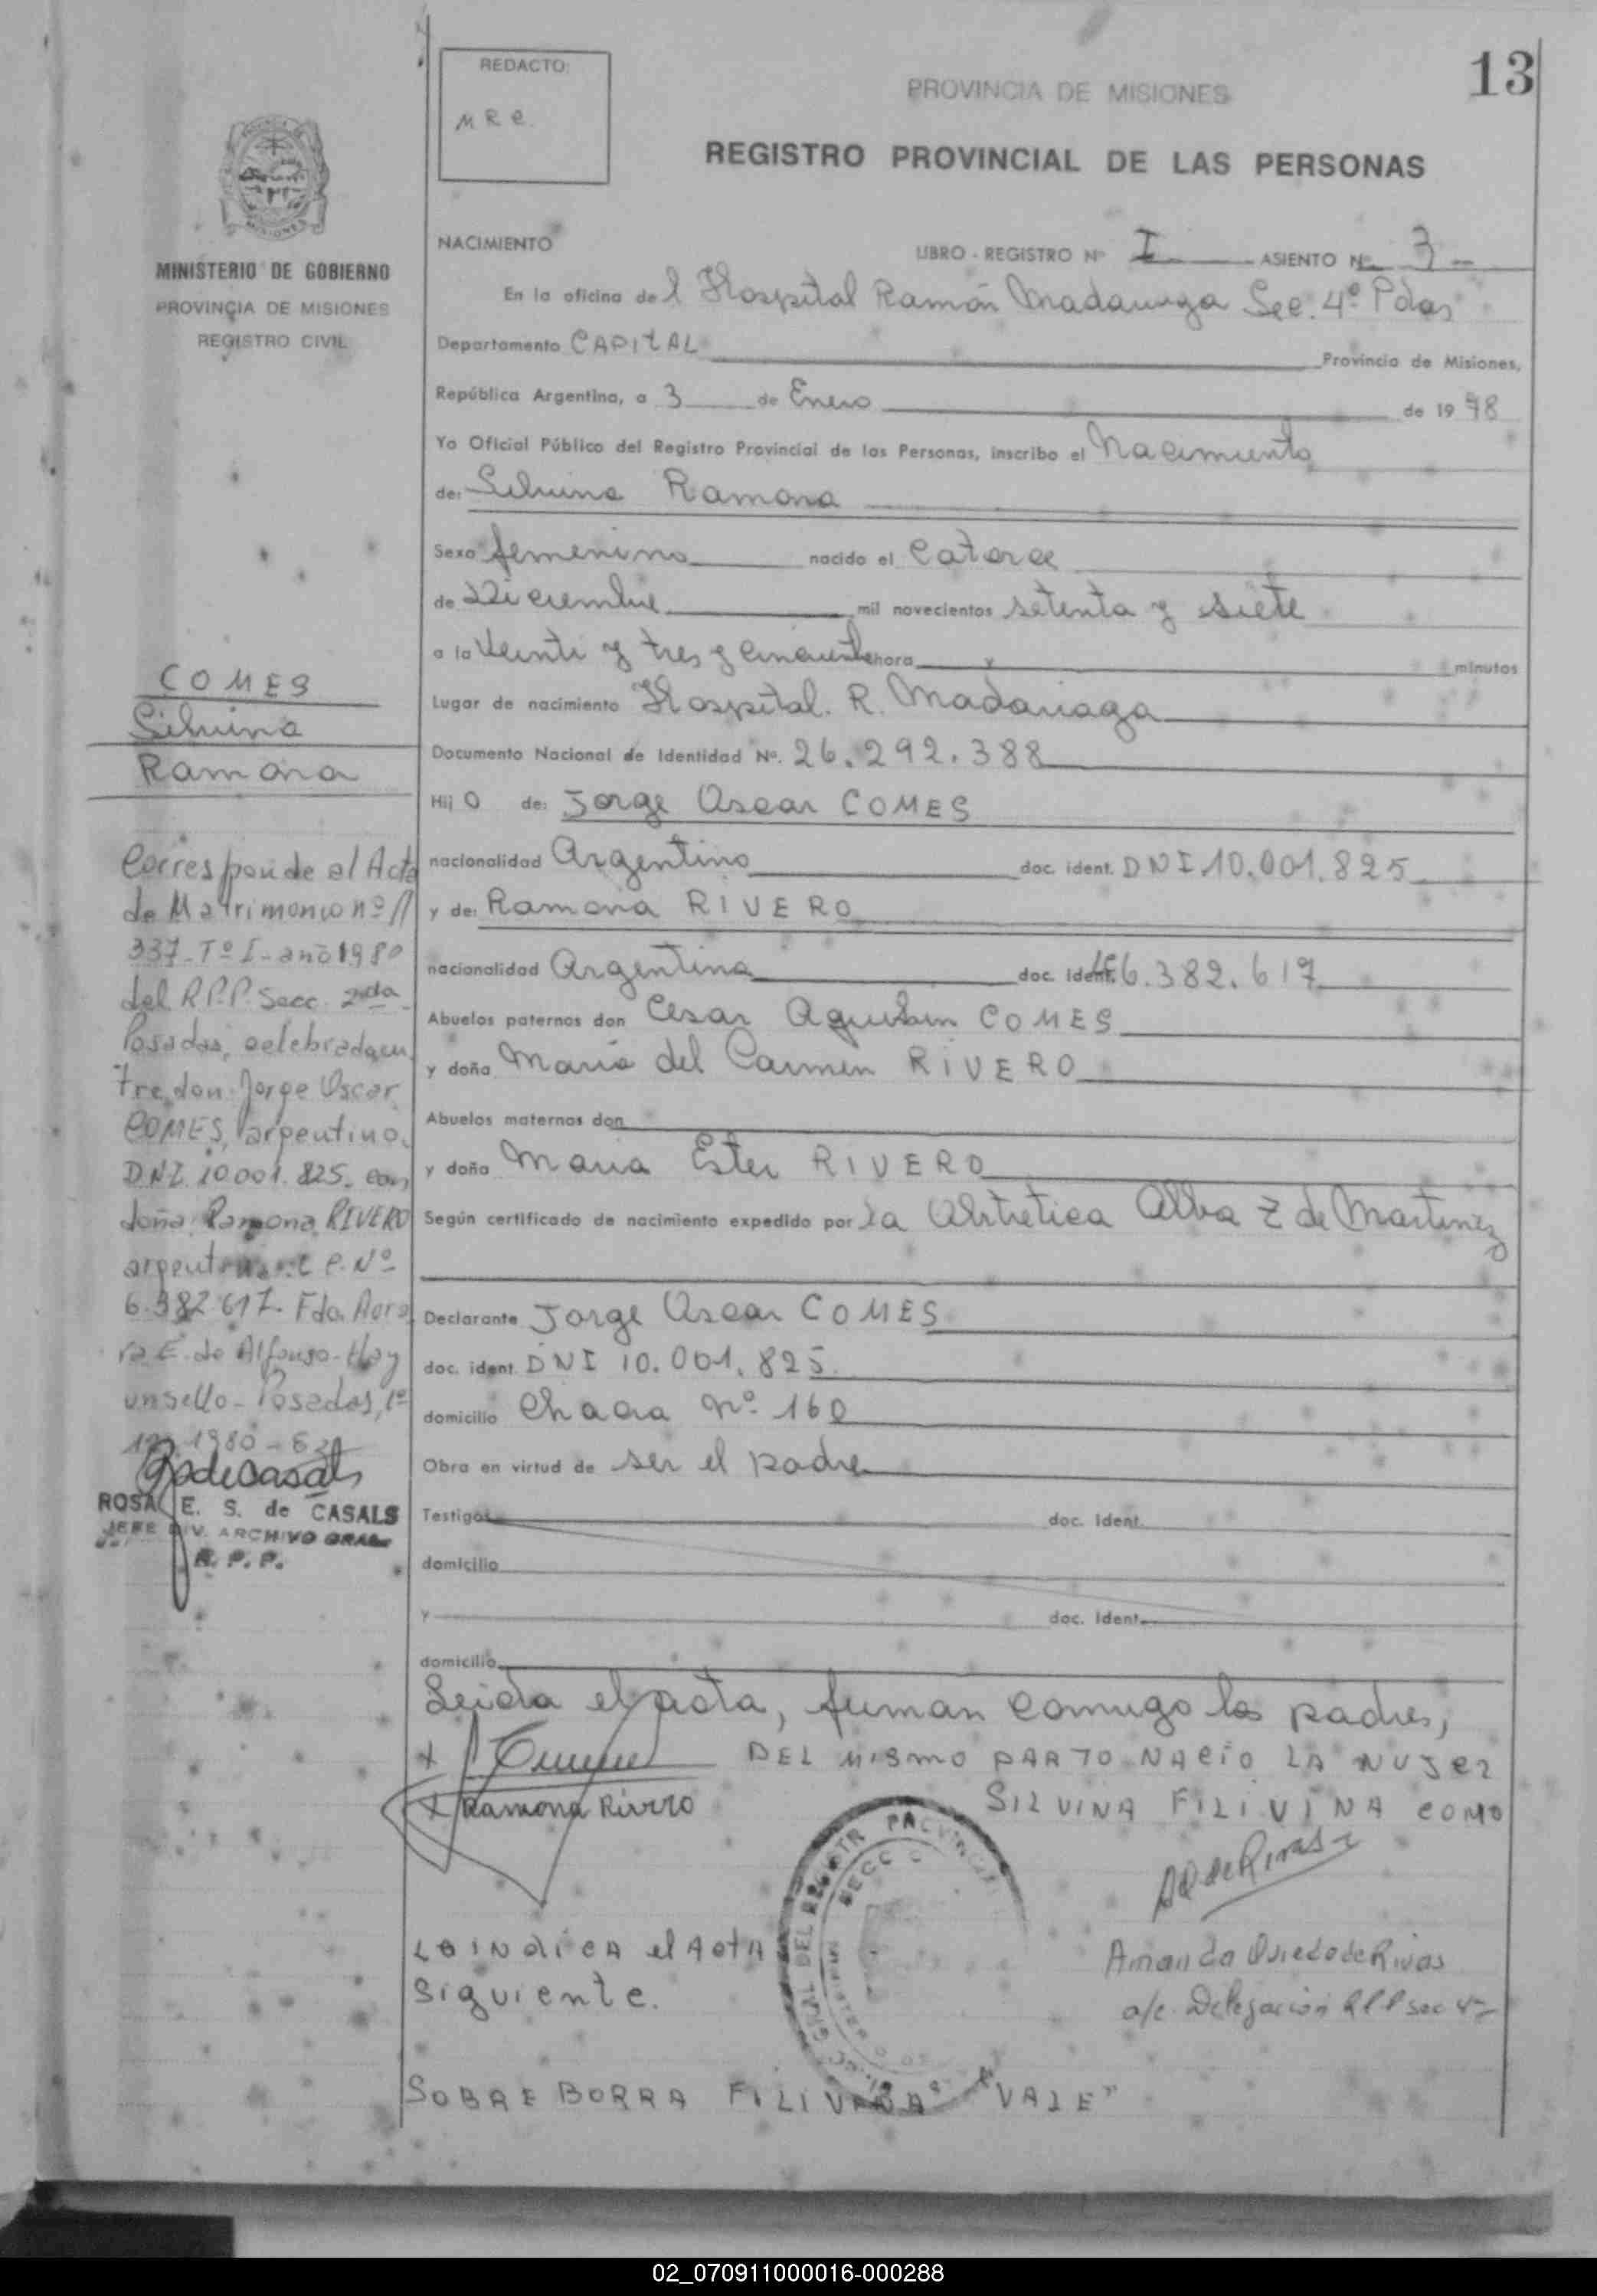 13
REDACTO:
M R C.
PROVINCIA DE MISIONES
REGISTRO PROVINCIAL DE LAS PERSONAS
MINISTERIO DE GOBIERNO
PROVINCIA DE MISIONES
REGISTRO CIVIL
NACIMIENTO
LIBRO - REGISTRO Nº I ASIENTO Nº 3
En la oficina del Hospital Ramón Madariaga Sec. 4º Pdas
Departamento CAPITAL Provincia de Misiones,
República Argentina, a 3 de Enero de 1978
Yo Oficial Público del Registro Provincial de las Personas, inscribo el Nacimiento
de: Silvina Ramona
Sexo femenino nacido el Catorce
de Diciembre mil novecientos setenta y siete
a la Veinti y tres y cincuenta hora y minutos
Lugar de nacimiento Hospital. R. Madariaga
Documento Nacional de Identidad Nº. 26.292.388
Hij O de: Jorge Oscar COMES
nacionalidad Argentino doc. ident. DNI 10.001.825
y de: Ramona RIVERO
nacionalidad Argentina doc. ident. 6.382.617
Abuelos paternos don Cesar Agustin COMES
y doña Maria del Carmen RIVERO
Abuelos maternos don
y doña Maria Ester RIVERO
Según certificado de nacimiento expedido por la Obstetrica Alba Z de Martinez
Declarante Jorge Oscar COMES
doc. ident. DNI 10.001.825
domicilio Chacra Nº 160
Obra en virtud de ser el padre
Testigos doc. ident.
domicilio
y doc. ident.
domicilio
Leida el acta, firman conmigo los padres,
DEL MISMO PARTO NACIO LA MUJER
+ Ramona Rivero
SILVINA FILIVINA COMO
LO INDICA el ACTA
Siguiente.
Amanda Oviedo de Rivas
a/c Delegación R.P.P sec 4º
SOBRE BORRA FILIVINA "VALE"
COMES
Silvina
Ramona
Corresponde al Acta
de Matrimonio nº
337-Tº I-año 1980
del R.P.P. Secc. 2da
Posadas, celebrada en
tre don Jorge Oscar
COMES, argentino,
DNI 10.001.825. con
doña Ramona RIVERO
argentina L.C. Nº
6.382.617. Fdo. Auro
ra E. de Alfonso-Hay
un sello-Posadas,
1980
ROSA E. S. de CASALS
JEFE DIV. ARCHIVO GRAL.
R. P. P.
02_070911000016-000288